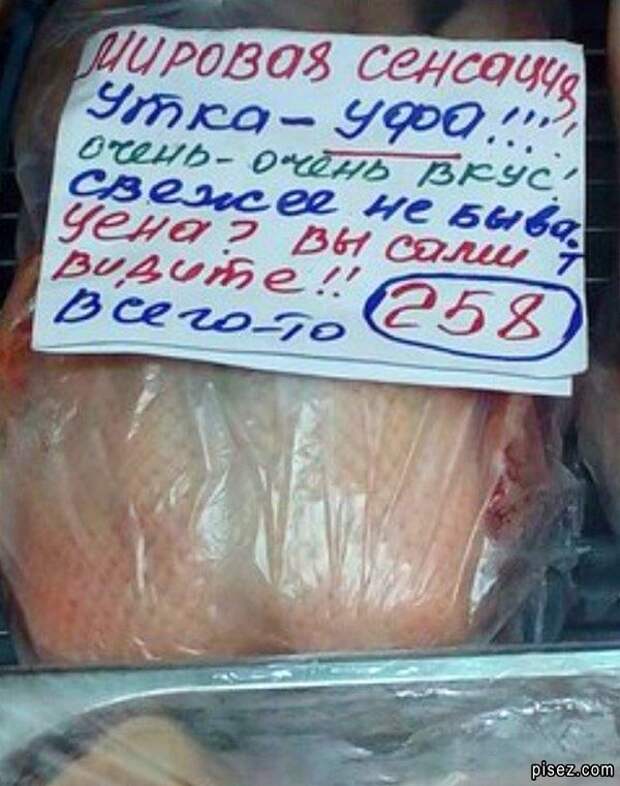 МИРОВАЯ СЕНСАЦИЯ
УТКА - УФА!!!!!
ОЧЕНЬ - ОЧЕНЬ ВКУС!
СВЕЖЕЕ НЕ БЫВАЕТ
ЦЕНА? ВЫ САМИ
ВИДИТЕ!!
ВСЕГО-ТО 258
pisez.com